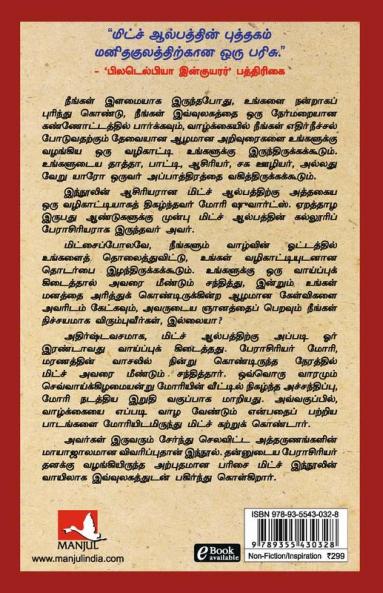 “மிட்ச் ஆல்பத்தின் புத்தகம்
மனிதகுலத்திற்கான ஒரு பரிசு.”
– ‘பிலடெல்பியா இன்குயரர்’ பத்திரிகை
நீங்கள் இளமையாக இருந்தபோது, உங்களை நன்றாகப்
புரிந்து கொண்டு, நீங்கள் இவ்வுலகத்தை ஒரு நேர்மறையான
கண்ணோட்டத்தில் பார்க்கவும், வாழ்க்கையில் நீங்கள் எதிர்நீச்சல்
போடுவதற்கும் தேவையான ஆழமான அறிவுரைகளை உங்களுக்கு
வழங்கிய ஒரு வழிகாட்டி உங்களுக்கு இருந்திருக்கக்கூடும்.
உங்களுடைய தாத்தா, பாட்டி, ஆசிரியர், சக ஊழியர், அல்லது
வேறு யாரோ ஒருவர் அப்பாத்திரத்தை வகித்திருக்கக்கூடும்.
இந்நூலின் ஆசிரியரான மிட்ச் ஆல்பத்திற்கு அத்தகைய
ஒரு வழிகாட்டியாகத் திகழ்ந்தவர் மோரி ஷுவார்ட்ஸ். ஏறத்தாழ
இருபது ஆண்டுகளுக்கு முன்பு மிட்ச் ஆல்பத்தின் கல்லூரிப்
பேராசிரியராக இருந்தவர் அவர்.
மிட்சைப்போலவே, நீங்களும் வாழ்வின் ஓட்டத்தில்
உங்களைத் தொலைத்துவிட்டு, உங்கள் வழிகாட்டியுடனான
தொடர்பை இழந்திருக்கக்கூடும். உங்களுக்கு ஒரு வாய்ப்புக்
கிடைத்தால் அவரை மீண்டும் சந்தித்து, இன்றும் உங்கள்
மனத்தை அரித்துக் கொண்டிருக்கின்ற ஆழமான கேள்விகளை
அவரிடம் கேட்கவும், அவருடைய ஞானத்தைப் பெறவும் நீங்கள்
நிச்சயமாக விரும்புவீர்கள், இல்லையா?
அதிர்ஷ்டவசமாக, மிட்ச் ஆல்பத்திற்கு அப்படி ஓர்
இரண்டாவது வாய்ப்புக் கிடைத்தது. பேராசிரியர் மோரி,
மரணத்தின் வாசலில் நின்று கொண்டிருந்த நேரத்தில்
மிட்ச் அவரை மீண்டும் சந்தித்தார். ஒவ்வொரு வாரமும்
செவ்வாய்க்கிழமையன்று மோரியின் வீட்டில் நிகழ்ந்த அச்சந்திப்பு,
மோரி நடத்திய இறுதி வகுப்பாக மாறியது. அவ்வகுப்பில்,
வாழ்க்கையை எப்படி வாழ வேண்டும் என்பதைப் பற்றிய
பாடங்களை மோரியிடமிருந்து மிட்ச் கற்றுக் கொண்டார்.
அவர்கள் இருவரும் சேர்ந்து செலவிட்ட அத்தருணங்களின்
மாயாஜாலமான விவரிப்புதான் இந்நூல். தன்னுடைய பேராசிரியர்
தனக்கு வழங்கியிருந்த அற்புதமான பரிசை மிட்ச் இந்நூலின்
வாயிலாக இவ்வுலகத்துடன் பகிர்ந்து கொள்கிறார்.
MANJUL
www.manjulindia.com
eBook
available
ISBN 978-93-5543-032-8
9789355430328
Non-Fiction/Inspiration ₹299